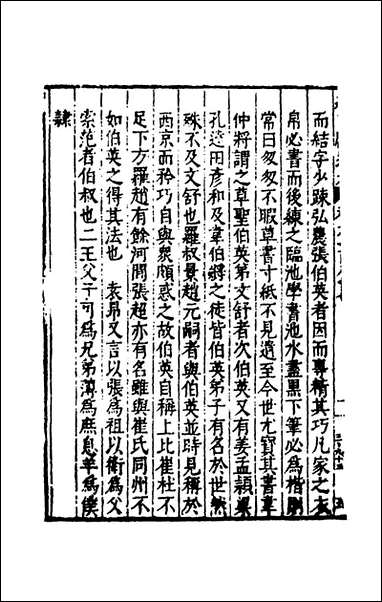 而結字少踈弘農張伯英者因而專精其巧凡家之衣
帛必書而後練之臨池學書池水盡黑下筆必爲楷則
常曰匆匆不暇草書寸紙不見遺至今世尤寶其書韋
仲將謂之草聖伯英弟文舒者次伯英又有姜孟頴梁
孔逹田彦和及韋仲將之徒皆伯英弟子有名於世然
殊不及文舒也羅叔景趙元嗣者與伯英並時見稱於
西京而矜巧自與衆頗惑之故伯英自稱上比崔杜不
足下方羅趙有餘河間張超亦有名雖與崔氏同州不
如伯英之得其法也 袁昻又言以張爲祖以衛爲父
索范者伯叔也二王父子可爲兄弟薄爲庶息羊爲僕
隷